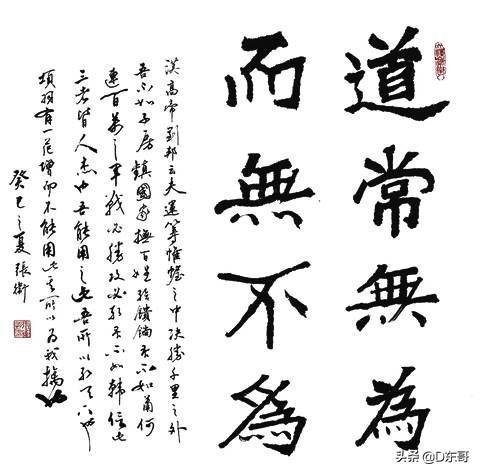 道常無為
而無不為
漢高帝劉邦云夫運筹帷幄之中决勝千里之外
吾不如子房鎮國家撫百姓给饋餉吾不如萧何
連百萬之軍戰必勝攻必取吾不如韩信也
三者皆人杰也吾能用之此吾所以取天下也
項羽有一范增而不能用此其所以为我擒也
癸巳之夏張
头条 @D东哥